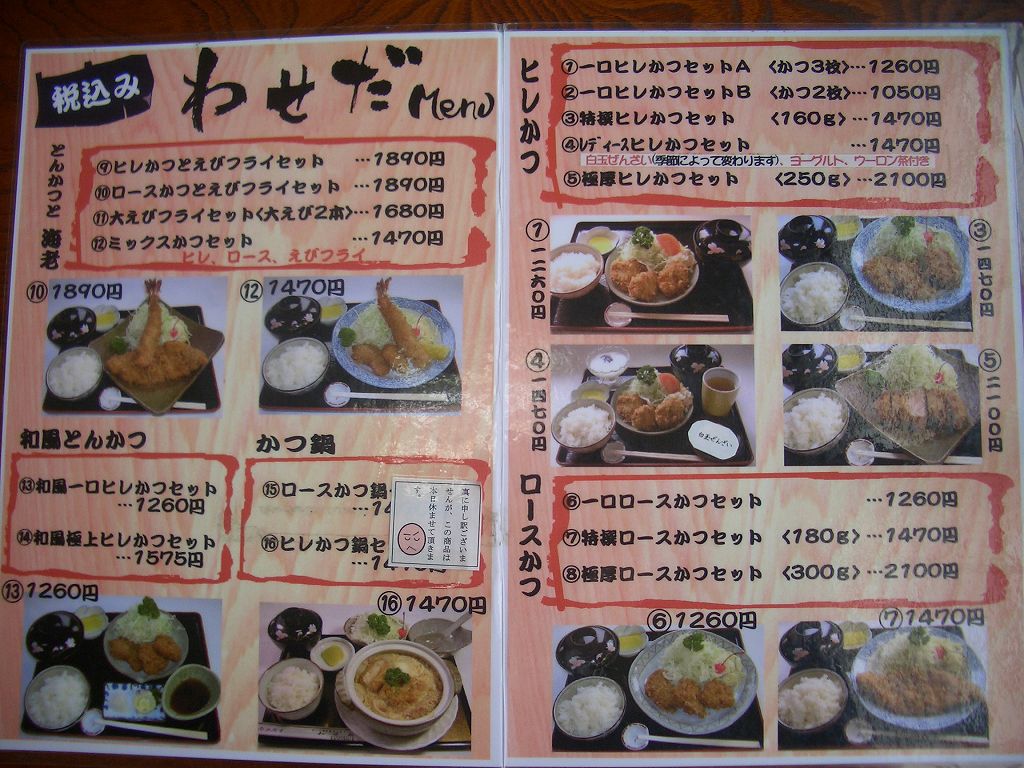 税込み
わせだ Menu
とんかつと海老
⑨ヒレかつとえびフライセット …1890円
⑩ロースかつとえびフライセット …1890円
⑪大えびフライセット〈大えび2本〉…1680円
⑫ミックスかつセット …1470円
ヒレ、ロース、えびフライ
⑩1890円
⑫1470円
和風とんかつ
⑬和風一口ヒレかつセット
…1260円
⑭和風極上ヒレかつセット
…1575円
かつ鍋
⑮ロースかつ鍋
⑯ヒレかつ鍋セ
真に申し訳ございま
せんが、この商品は
本日休ませて頂きま
す。
⑬1260円
⑯1470円
ヒレかつ
①一口ヒレかつセットA 〈かつ3枚〉…1260円
②一口ヒレかつセットB 〈かつ2枚〉…1050円
③特撰ヒレかつセット 〈160g〉…1470円
④レディースヒレかつセット …1470円
白玉ぜんざい(季節によって変わります)、ヨーグルト、ウーロン茶付き
⑤極厚ヒレかつセット 〈250g〉…2100円
①一二六〇円
③一四七〇円
④一四七〇円
白玉ぜんざい
⑤二一〇〇円
ロースかつ
⑥一口ロースかつセット …1260円
⑦特撰ロースかつセット 〈180g〉…1470円
⑧極厚ロースかつセット 〈300g〉…2100円
⑥1260円
⑦1470円